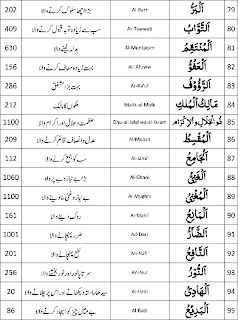 202 بڑا اچھا سلوک کرنے والا Al-Barr اَلْبَرُّ 79
409 سب سے زیادہ توبہ قبول کرنے والا At-Tawwab اَلتَّوَّابُ 80
630 بدلہ لینے والا Al-Muntaqim اَلْمُنْتَقِمُ 81
156 بہت زیادہ معاف کرنے والا Al-'Afuww اَلْعَفُوُّ 82
286 بہت بڑا مشفق Ar-Ra'uf اَلرَّؤُوْفُ 83
212 ملکوں کا مالک Malik-al-Mulk مَالِكُ الْمُلْكِ 84
1100 عظمت و جلال اور اکرام والا Dhu-al-Jalal wa-al-Ikram ذُوالْجَلَالِ وَالْاِكْرَامِ 85
209 عدل و انصاف قائم کرنے والا Al-Muqsit اَلْمُقْسِطُ 86
112 سب کو جمع کرنے والا Al-Jami' اَلْجَامِعُ 87
1060 بڑا بے نیاز و بے پرواہ Al-Ghani اَلْغَنِيُّ 88
1100 بے نیاز و غنی بنا دینے والا Al-Mughni اَلْمُغْنِيُ 89
161 روک دینے والا Al-Mani' اَلْمَانِعُ 90
1001 ضرر پہنچانے والا Ad-Darr اَلضَّارُّ 91
201 نفع پہنچانے والا An-Nafi' اَلنَّافِعُ 92
256 سر تا پا نور اور نور بخشنے والا An-Nur اَلنُّوْرُ 93
20 سیدھا راستہ دکھانے اور اس پر چلانے والا Al-Hadi اَلْهَادِيْ 94
86 بے مثال چیز کو ایجاد کرنے والا Al-Badi اَلْبَدِيْعُ 95